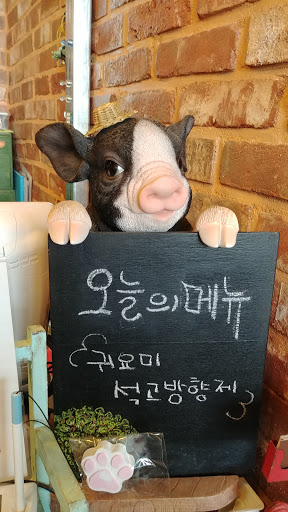 오늘의메뉴
귀요미
석고방향제